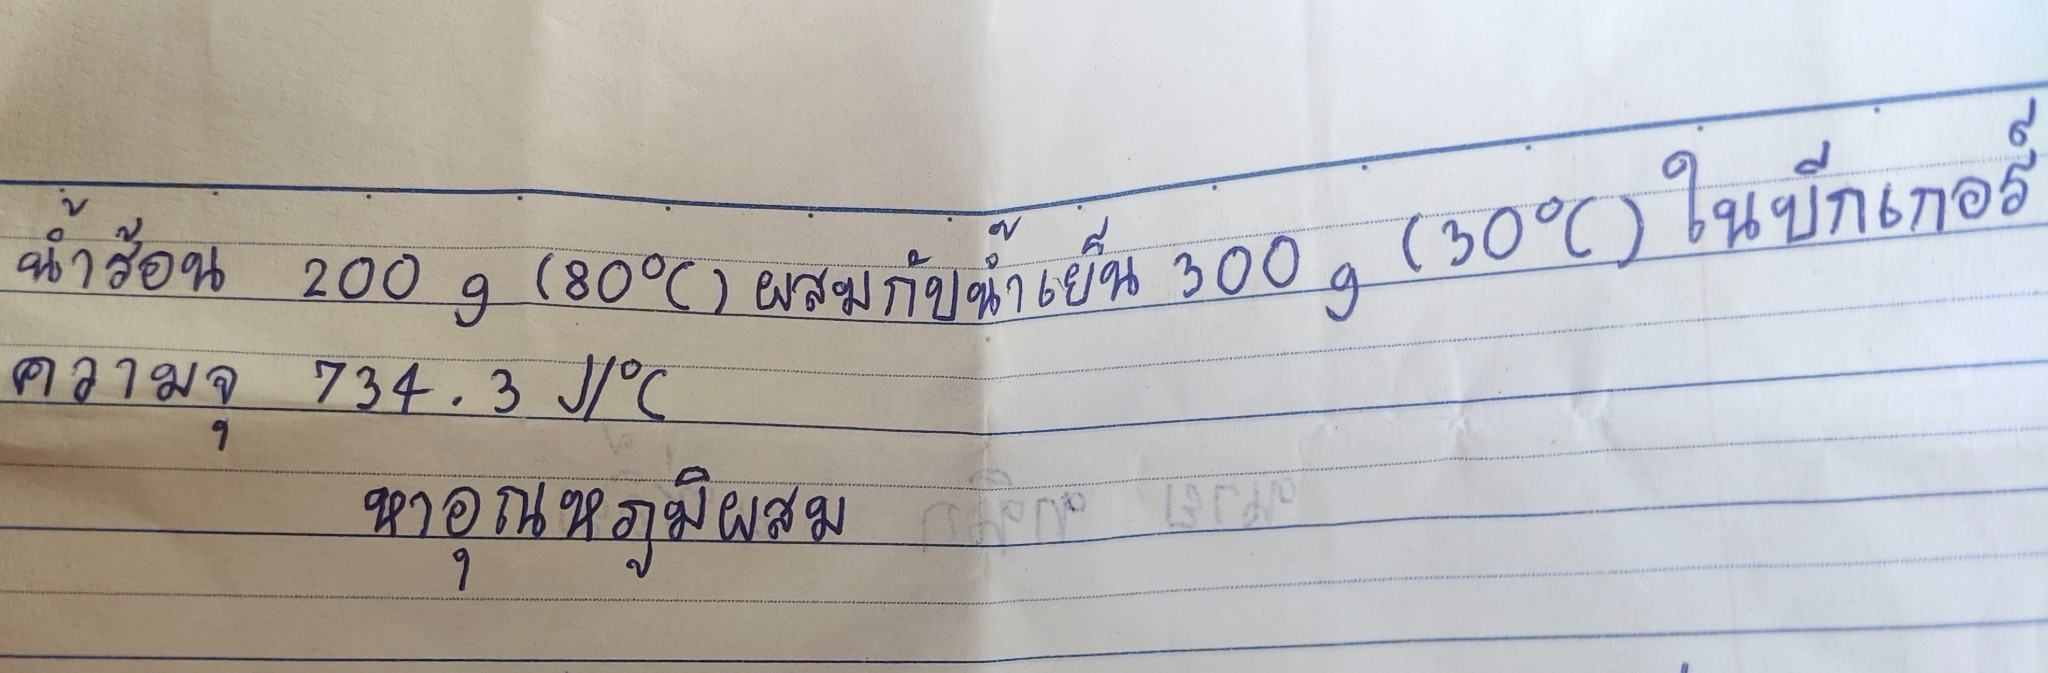 น้ำร้อน 200 g (80°C) ผสมกับน้ำเย็น 300 g (30°C) ในบีกเกอร์
ความจุ 734.3 J/°C
หาอุณหภูมิผสม